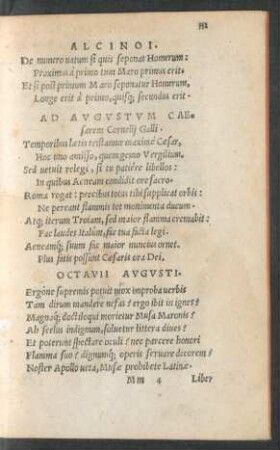 352
ALCINOI.
De numero vatum si quis seponat Homerum:
Proximus à primo tum Maro primus erit.
Et si post primum Maro seponatur Homerum,
Longe erit à primo, quisq; secundus erit.
AD AVGVSTVM CAE-
sarem Cornelij Galli.
Temporibus lætis tristamur maxime Cæsar,
Hoc uno amisso, quem gemo Vergilium.
Sed uetuit relegi, si tu patiere libellos:
In quibus Aeneam condidit ore sacro.
Roma rogat: precibus totus tibi supplicat orbis:
Ne pereant flammis tot monimenta ducum.
Atq; iterum Troiam, sed maior flamma cremabit:
Fac laudes Italûm, fac tua facta legi.
Aeneamq; suum fac maior nuncius ornet.
Plus fatis possunt Cæsaris ora Dei.
OCTAVII AVGVSTI.
Ergóne supremis potuit uox improba uerbis
Tam dirum mandare nefas? ergo ibit in ignes?
Magnaq; doctiloqui morietur Musa Maronis?
Ah scelus indignum, soluetur littera diues?
Et poterunt spectare oculi? nec parcere honori
Flamma suo? dignumq; operis seruare decorem?
Noster Apollo ueta, Musæ prohibete Latinæ.
Mm 4 Liber